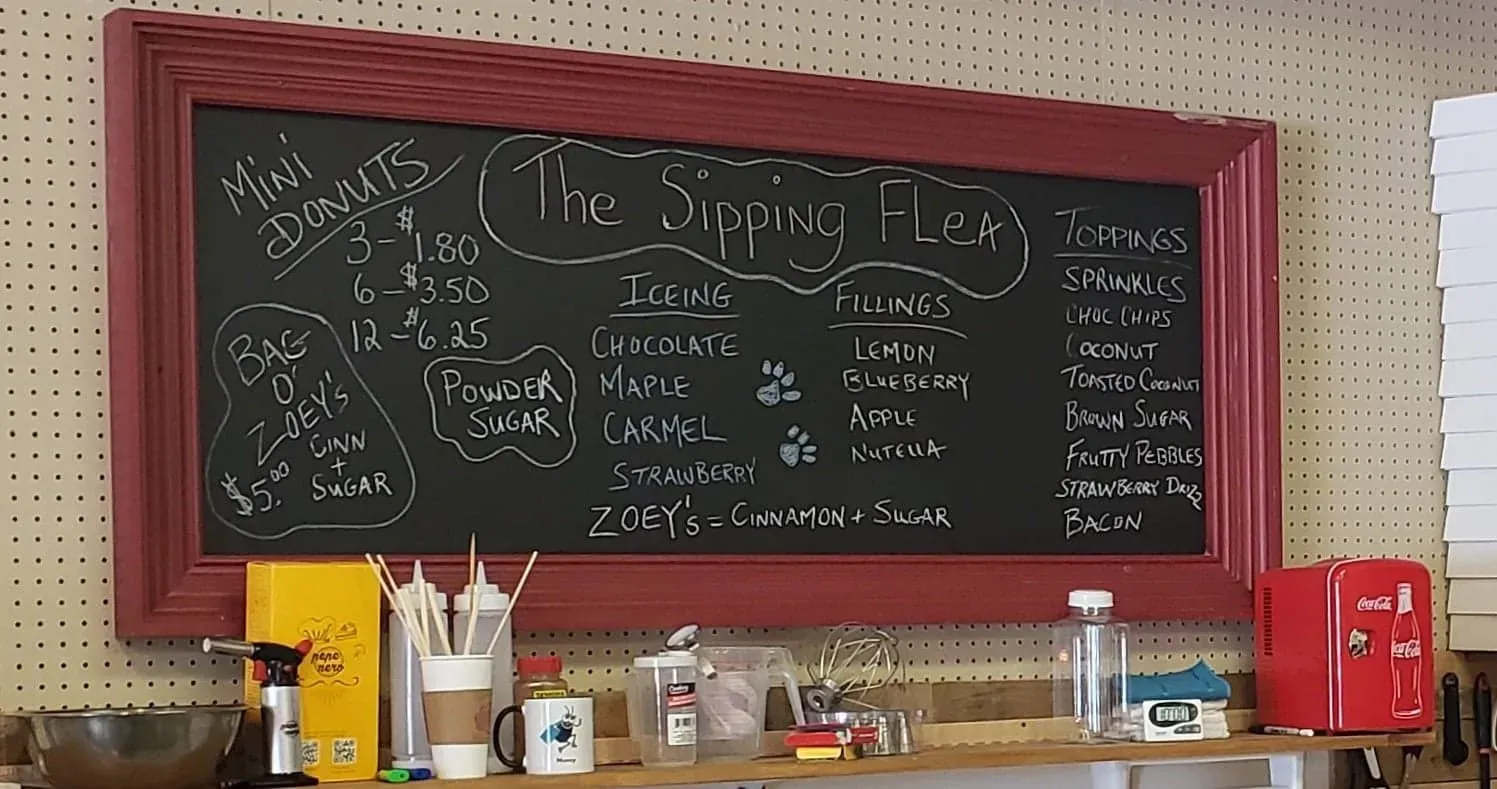 Mini
DONUTS
3-$1.80
6-$3.50
12-$6.25
BAG
O'
ZOEY's
CINN
+
SUGAR
$5.00
POWDER
SUGAR
The Sipping FLeA
ICEING
CHOCOLATE
MAPLE
CARMEL
STRAWBERRY
FILLINGS
LEMON
BLUEBERRY
APPLE
NUTELLA
ZOEY's = CINNAMON + SUGAR
TOPPINGS
SPRINKLES
CHOC CHIPS
COCONUT
TOASTED COCONUT
BROWN SUGAR
FRUTTY PEBBLES
STRAWBERRY DRIZZ
BACON
pepe
nero
Coca-Cola
Coca-Cola